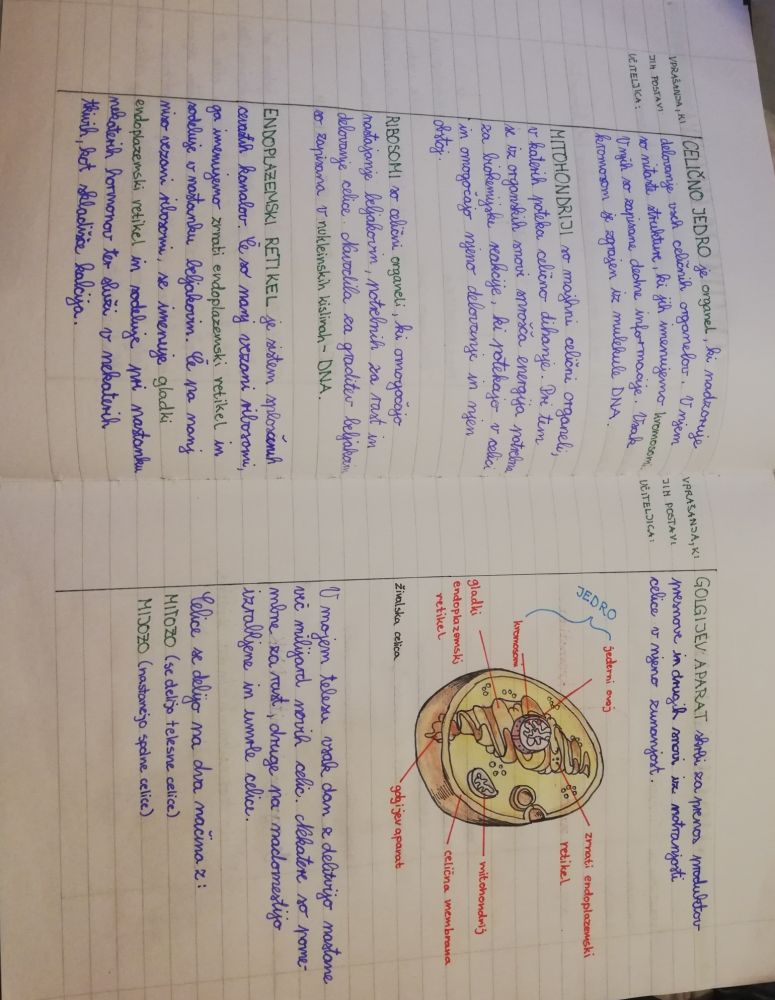 VPRAŠANJA, KI
JIH POSTAVI
UČITELJICA:
CELIČNO JEDRO je organel, ki nadzoruje
delovanje vseh celičnih organelov. V njem
so nitaste strukture, ki jih imenujemo kromosomi.
V njih so zapisane dedne informacije. Vsak
kromosom je zgrajen iz molekule DNA.
MITOHONDRIJI so majhni celični organeli,
v katerih poteka celično dihanje. Pri tem
se iz organskih snovi sprošča energija potrebna
za biokemijske reakcije, ki potekajo v celici
in omogočajo njeno delovanje in njen
obstoj.
RIBOSOMI so celični organeli, ki omogočajo
nastajanje beljakovin, potrebnih za rast in
delovanje celice. Navodila za graditev beljakovin
so zapisana v nukleinskih kislinah - DNA.
ENDOPLAZEMSKI RETIKEL je sistem sploščenih
cevastih kanalov. Če so nanj vezani ribosomi,
ga imenujemo zrnati endoplazemski retikel in
sodeluje v nastanku beljakovin. Če pa nanj
niso vezani ribosomi, se imenuje gladki
endoplazemski retikel in sodeluje pri nastanku
nekaterih hormonov ter služi v nekaterih
tkivih, kot skladišče kalcija.
VPRAŠANJA, KI
JIH POSTAVI
UČITELJICA:
GOLGIJEV APARAT skrbi za prenos produktov
presnove in drugih snovi iz notranjosti
celice v njeno zunanjost.
JEDRO
jederni ovoj
kromosom
zrnati endoplazemski
retikel
gladki
endoplazemski
retikel
mitohondrij
celična membrana
golgijev aparat
živalska celica
V mojem telesu vsak dan z delitvijo nastane
več milijard novih celic. Nekatere so pome-
mbne za rast, druge pa nadomestijo
izrabljene in umrle celice.
Celice se delijo na dva načina z:
MITOZO (se delijo telesne celice)
MEJOZO (nastanejo spolne celice)